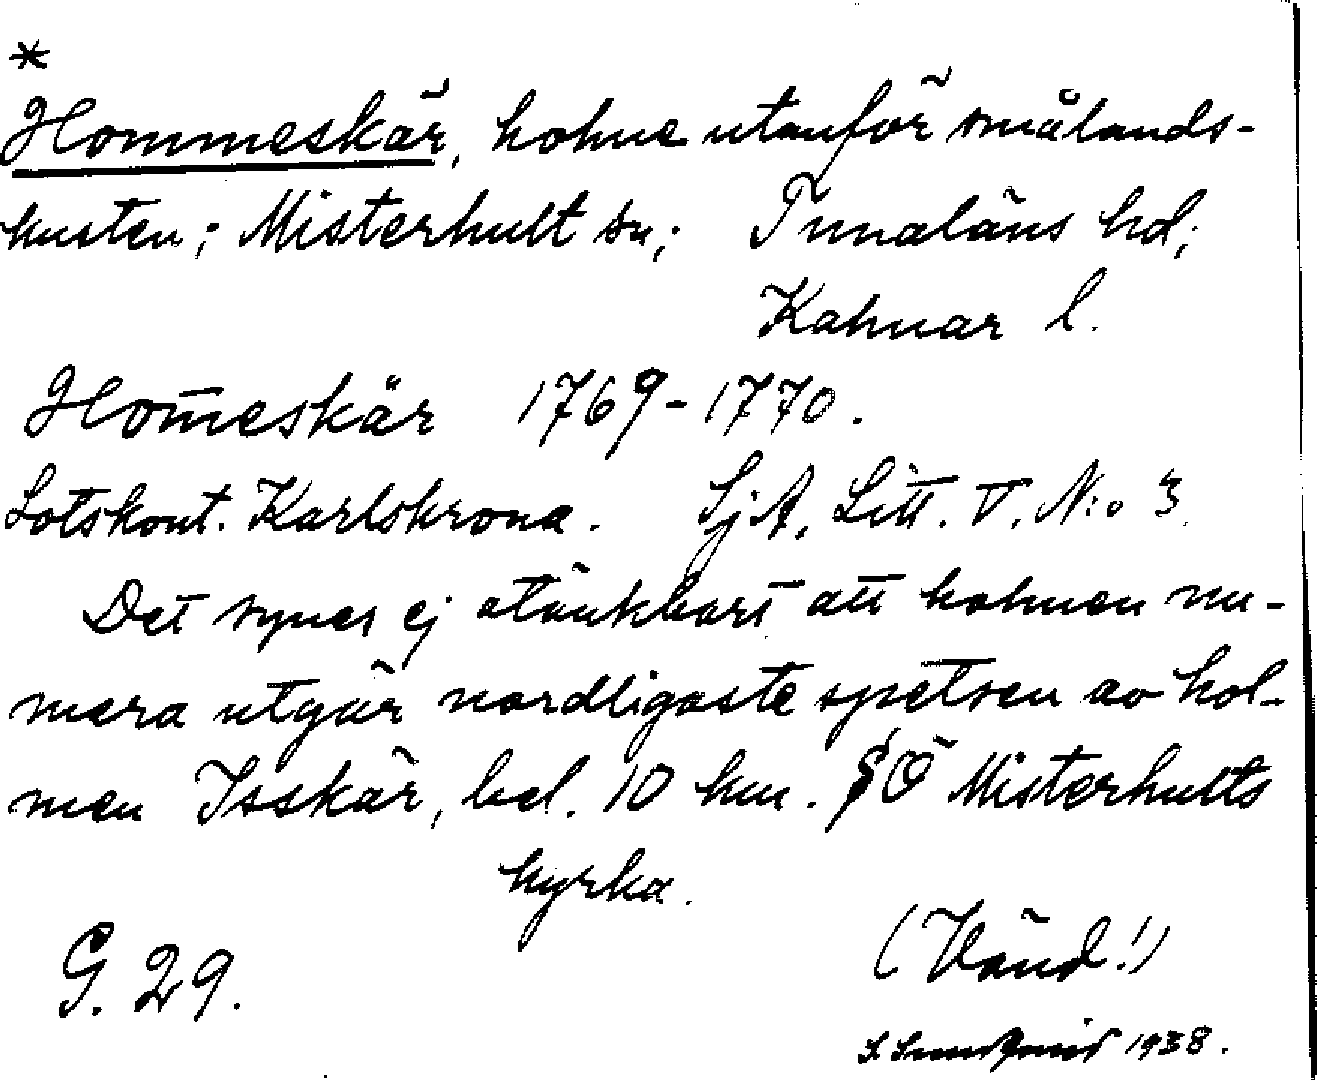 *
Hommeskär, holme utanför smålands-
kusten; Misterhult sn; Tunaläns hd;
Kalmar l.
Hom̄eskär 1769-1770.
Lotskont. Karlskrona. SjA, Litt. V. N:o 3.
Det synes ej otänkbart att holmen nu-
mera utgör nordligaste spetsen av hol-
men Isskär, bel. 10 km. SÖ Misterhults
kyrka.
G. 29.
(Vänd!)
1938.